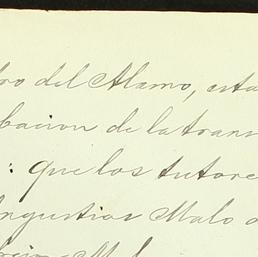 ro del Alamo, esta
bacion de la trans
: que los tutore
Angustias Malo